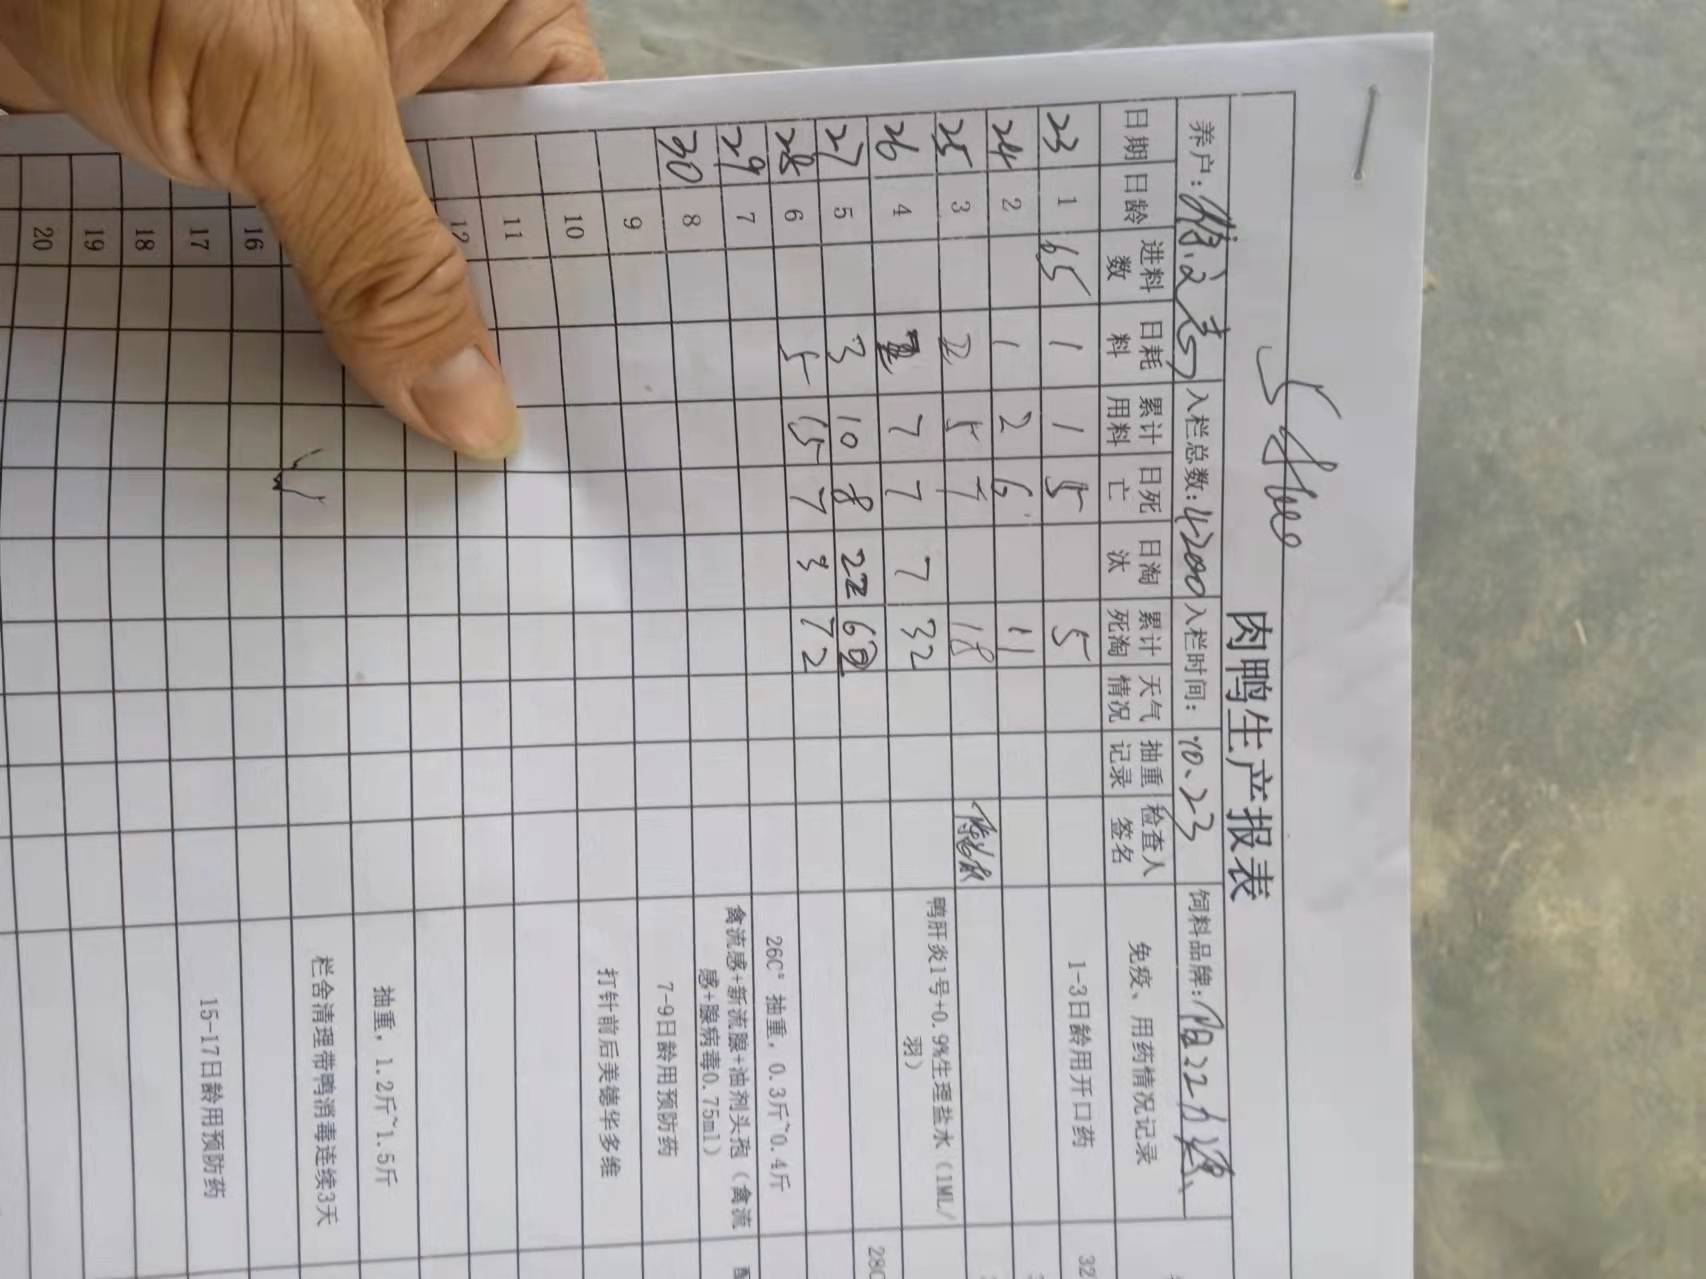 肉鸭生产报表
养户： 入栏总数：4200 入栏时间：10.23 饲料品牌：
日期 日龄 进料数 日耗料 累计用料 日死亡 日淘汰 累计死淘 天气情况 抽重记录 检查人签名 免疫、用药情况记录
23 1 65 1 1 5 5 1-3日龄用开口药 32
24 2 1 2 6 11
25 3 2 5 7 18 鸭肝炎1号+0.9%生理盐水（1ML/羽）
26 4 7 7 7 32 28C
27 5 3 10 8 22
28 6 5 15 7 3 72 26C° 抽重，0.3斤~0.4斤
29 7 禽流感+新流腺+油剂头孢（禽流感+腺病毒0.75ml） 配
30 8 7-9日龄用预防药
9 打针前后美德华多维
10
11
12
抽重，1.2斤~1.5斤
栏舍清理带鸭消毒连续3天
16
17 15-17日龄用预防药
18
19
20